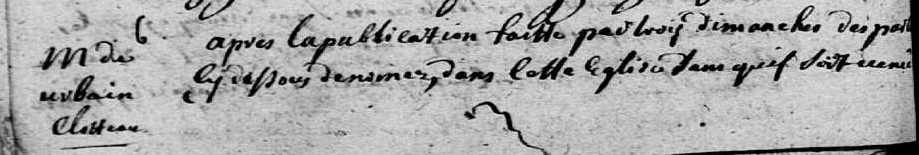 M de
urbain
Clotteau
6
apres la publication faitte par trois dimanches des
Cy dessous denomez, dans Cette Eglise sans quil soit